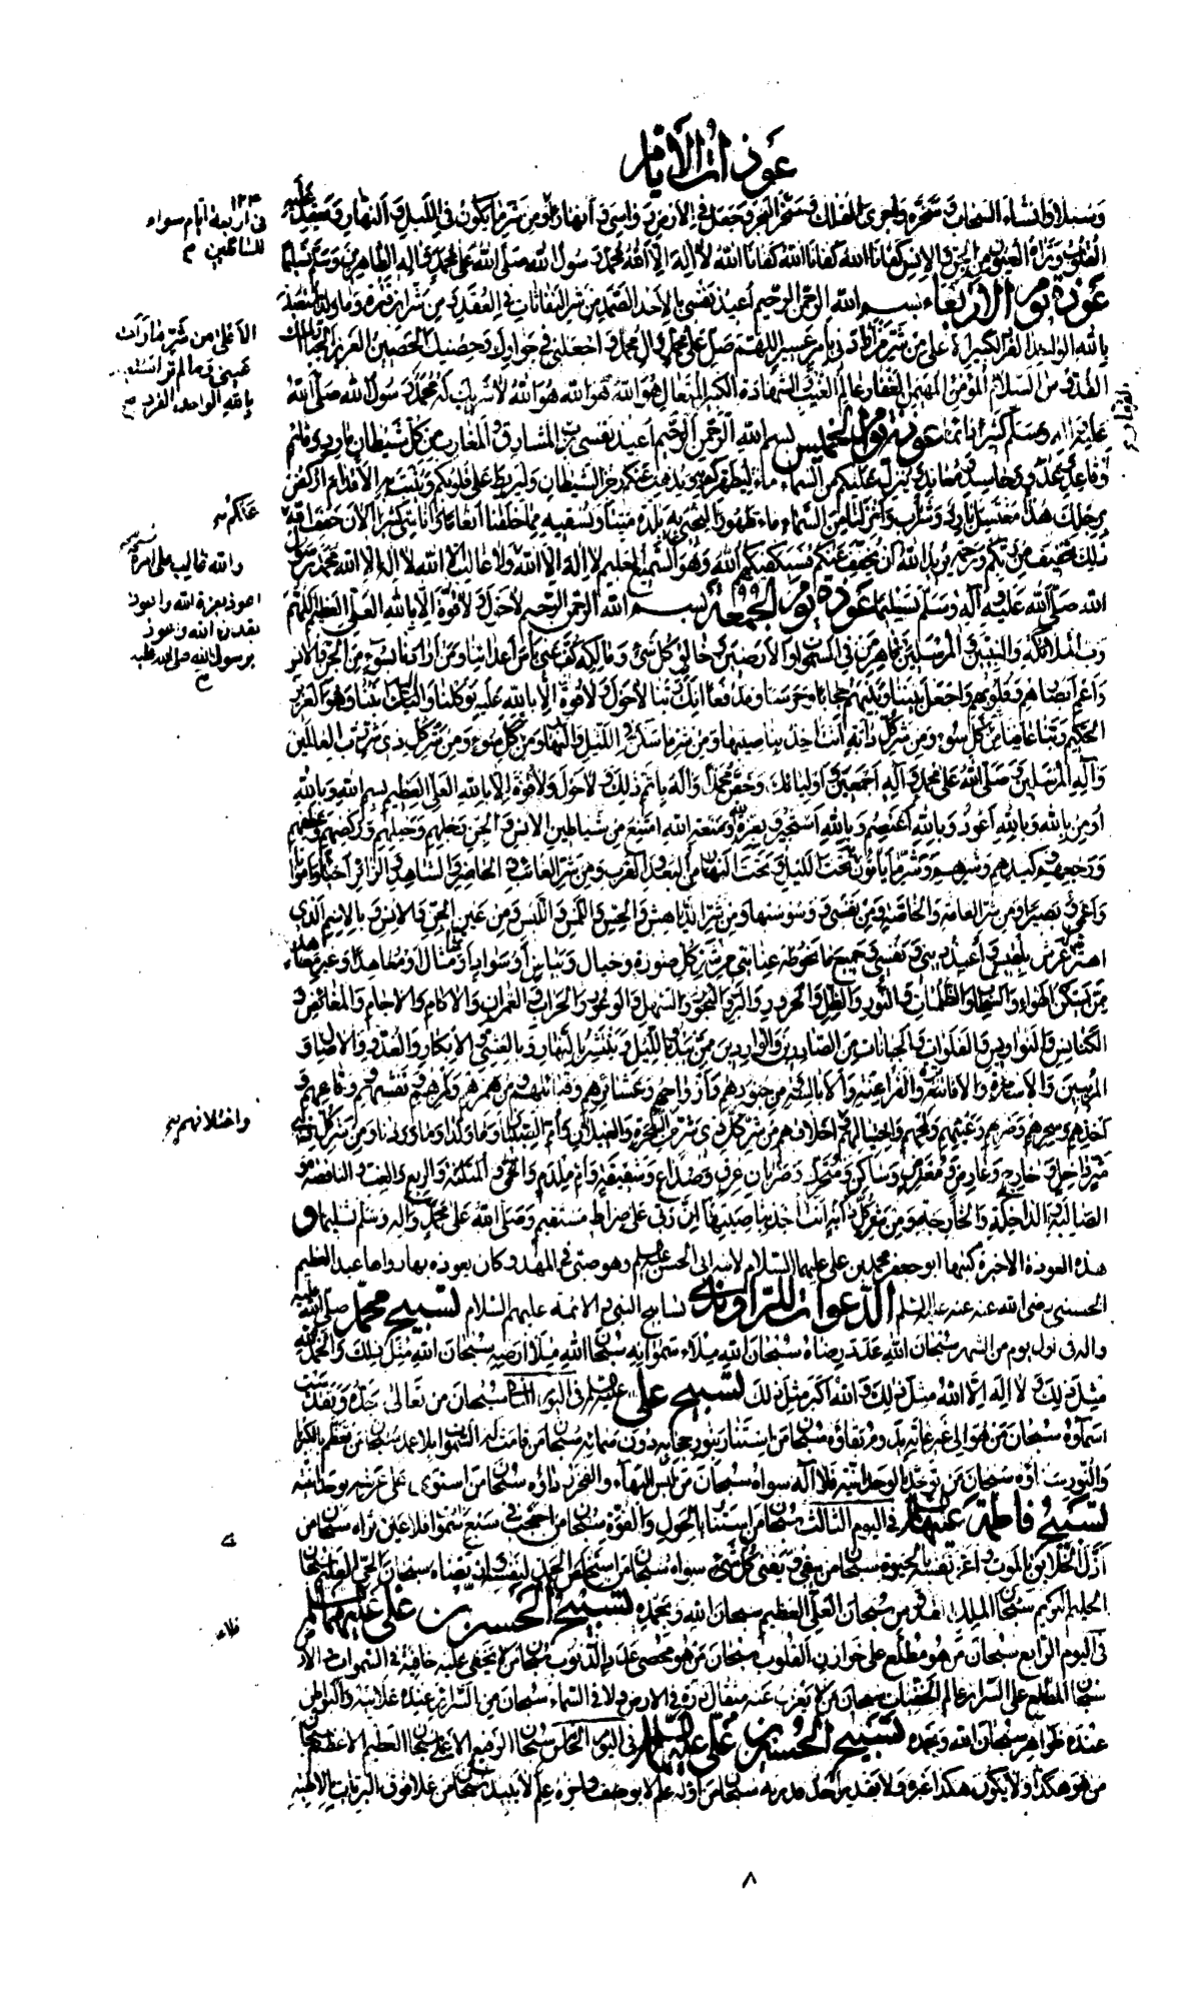 عوذات الأيام
وسبلا وانشاء السحاب وسخره واجرى الفلك وسخر البحر وجعل في الارض رواسي وانهارا من شر ما يكون في الليل والنهار ويعقد عليه
القلوب وتراه العيون من الجن والانس كفانا الله كفانا الله كفانا الله لا اله الا الله محمد رسول الله صلى الله على محمد واله الطاهرين وسلم تسليما
عوذة يوم الاربعاء بسم الله الرحمن الرحيم اعيذ نفسي بالاحد الصمد من شر النفاثات في العقد ومن شر ابن قترة وما ولد استعيذ
بالله الواحد الفرد الكبير الاعلى من شر ما رأت عيني اللهم صل على محمد وال محمد واجعلني في جوارك وحصنك الحصين العزيز الجبار الملك
القدوس السلام المؤمن المهيمن الغفار عالم الغيب والشهادة الكبير المتعال هو الله هو الله هو الله لا شريك له محمد رسول الله صلى الله
عليه واله وسلم كثيرا دائما عوذة يوم الخميس بسم الله الرحمن الرحيم اعيذ نفسي برب المشارق والمغارب من كل شيطان مارد وقائم
وقاعد وعدو وحاسد ومعاند وينزل عليكم من السماء ماء ليطهركم به ويذهب عنكم رجز الشيطان وليربط على قلوبكم ويثبت به الاقدام اركض
برجلك هذا مغتسل بارد وشراب وانزلنا من السماء ماء طهورا لنحيي به بلدة ميتا ونسقيه مما خلقنا انعاما واناسي كثيرا الان خفف الله
ذلك تخفيف من ربكم ورحمة يريد الله ان يخفف عنكم فسيكفيكهم الله وهو السميع العليم لا اله الا الله ولا غالب الا الله لا اله الا الله محمد رسول
الله صلى الله عليه وآله وسلم تسليما عوذة يوم الجمعة بسم الله الرحمن الرحيم لا حول ولا قوة الا بالله العلي العظيم اللهم
رب الملائكة والنبيين والمرسلين وقاهر من في السموات والارضين وخالق كل شيء ومالكه كف عني بأس اعدائنا ومن اراد بنا سوء من الجن والانس
واعم ابصارهم وقلوبهم واجعل بيننا وبينهم حجابا وحرسا ومدفعا انك ربنا لا حول ولا قوة الا بالله عليه توكلنا واليه انبنا وهو العزيز
الحكيم ربنا عافنا من كل سوء ومن شر كل دابة انت اخذ بناصيتها ومن شر ما سكن في الليل والنهار ومن كل سوء ومن شر كل ذي شر رب العالمين
واله المرسلين وصل الله على محمد وآله اجمعين واوليائك وخص محمدا وآله باتم ذلك ولا حول ولا قوة الا بالله العلي العظيم بسم الله وبالله
اومن بالله وبالله اعوذ وبالله اعتصم وبالله استجير وبعزة الله ومنعته امتنع من شياطين الانس والجن ورجلهم وخيلهم وركضهم وعطفهم
ورجعتهم وكيدهم وشرهم وشر ما يأتون به تحت الليل وتحت النهار من البعد والقرب ومن شر الغائب والحاضر والشاهد والزائر احياء وامواتا
واعمى وبصيرا ومن شر العامة والخاصة ومن نفسي ووسوستها ومن شر الدناهش والحس واللمس واللبس ومن عين الجن والانس وبالاسم الذي
اهتز به عرش بلقيس واعيذ ديني ونفسي وجميع ما تحوطه عنايتي من شر كل صورة وخيال وبياض او سواد او تمثال او معاهد او غير معاهد
ممن يسكن الهواء والسحاب والظلمات والنور والظل والحرور والبر والبحور والسهل والوعور والخراب والعمران والاكام والاجام والمغايض و
الكنايس والنواويس والفلوات والجبانات من الصادرين والواردين ممن يبدو بالليل وينتشر بالنهار وبالعشي والابكار والغدو والاصال و
المريبين والاسامرة والافاترة والفراعنة والابالسة ومن جنودهم وازواجهم وعشائرهم وقبائلهم ومن همزهم ولمزهم ونفثهم ووقاعهم و
اخذهم وسحرهم وضربهم وعبثهم ولمحهم واحتيالهم واخلافهم من شر كل ذي شر من السحرة والغيلان وام الصبيان وما ولدوا وما وردوا ومن شر كل ذي
شر داخل وخارج وعارض ومتعرض وساكن ومتحرك وضربان عرق وصداع وشقيقة وام ملدم والحمى والمثلثة والربع والغب والنافضة و
الصالبة والداخلة والخارجة ومن شر كل دابة انت اخذ بناصيتها ان ربي على صراط مستقيم وصلى الله على محمد وآله وسلم تسليما و
هذه العوذة الاخيرة كتبها ابو جعفر محمد بن علي عليهما السلام لابنه ابي الحسن عليه السلم وهو صبي في المهد وكان يعوذه بها رواها عبد العظيم
الحسني رضى الله عنه عنه عليه السلم الدعوات للراوندي تسابيح النبي والائمة عليهم السلام تسبيح محمد صلى الله عليه
واله في اول يوم من الشهر سبحان الله عدد رضاه سبحان الله ملاء سمواته سبحان الله ملأ ارضه سبحان الله مثل ذلك والحمد لله
مثل ذلك ولا اله الا الله مثل ذلك والله اكبر مثل ذلك تسبيح علي عليه السلم في اليوم الثاني سبحان من تعالى جده وتقدست
اسماؤه سبحان من هو الى غير غاية يدوم بقاؤه سبحان من استنار بنور حجابه دون سمائه سبحان من قامت له السموات بلا عمد سبحان من تعظم بالكبرياء
والنور سناؤه سبحان من توحد بالوحدانية فلا اله سواه سبحان من لبس البهاء والفخر رداؤه سبحان من استوى على عرشه بوحدانيته
تسبيح فاطمة عليها السلم في اليوم الثالث سبحان من استنار بالحول والقوة سبحان من احتجب في سبع سموات فلا عين تراه سبحان من
اذل الخلائق بالموت واعز نفسه بالحيوة سبحان من يبقى ويفنى كل شيء سواه سبحان من استخلص الحمد لنفسه وارتضاه سبحان الحي العليم سبحان
الحليم الكريم سبحان الملك القدوس سبحان العلي العظيم سبحان الله وبحمده تسبيح الحسن بن علي عليهما السلم
في اليوم الرابع سبحان من هو مطلع على خوازن القلوب سبحان من هو محصي عدد الذنوب سبحان من لا يخفى عليه خافية في السموات والارض
سبحان المطلع على السرائر عالم الخفيات سبحان من لا يعزب عنه مثقال ذرة في الارض ولا في السماء سبحان من السرائر عنده علانية والبواطن
عنده ظواهر سبحان الله وبحمده تسبيح الحسين بن علي عليهما السلم في اليوم الخامس سبحان الرفيع الاعلى سبحان العظيم الاعظم سبحان
من هو هكذا ولا يكون هكذا غيره ولا يقدر احد قدرته سبحان من اوله علم لا يوصف واخره علم لا يبيد سبحان من علا فوق البريات بالالهية
في اربعة ايام سواء
للسائلين
الاعلى من شر ما رأت
عيني وما لم تر استعيذ
بالله الواحد الفرد
عنكم
والله غالب على امره
اعوذ بعزة الله واعوذ
بقدرة الله واعوذ
برسول الله صلى الله عليه
واختلافهم
فلا
٨